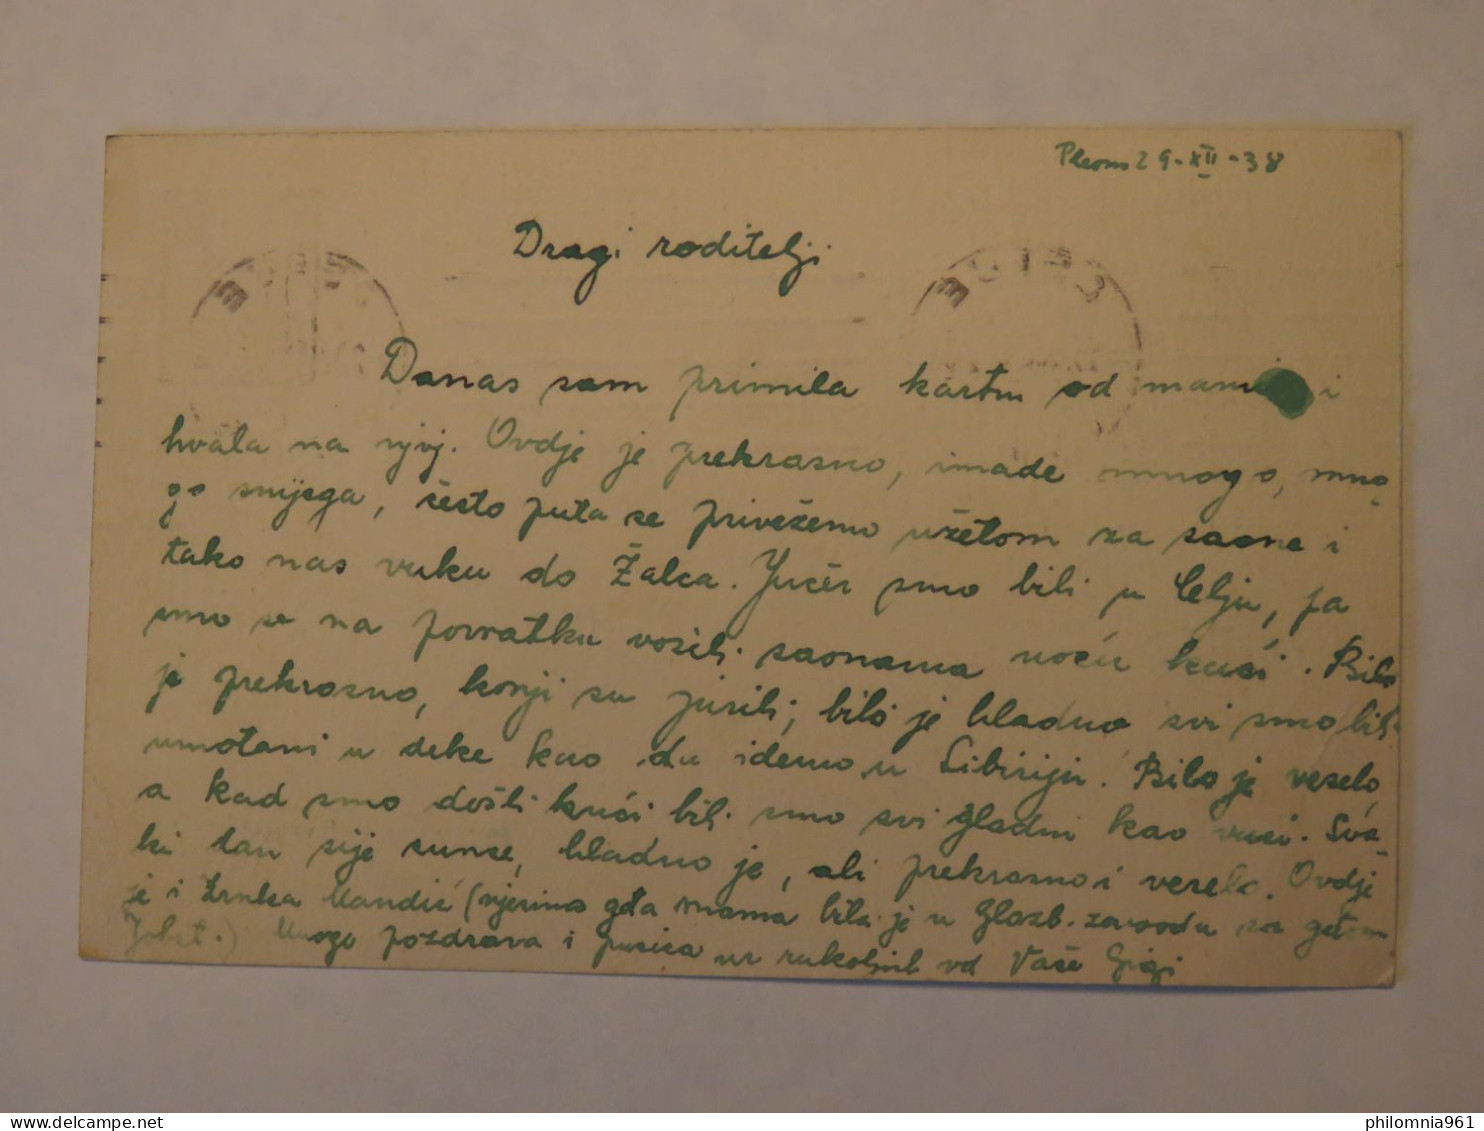 29-XII-38
Dragi roditelji
Danas sam primila kartu od mame i
hvala na njoj. Ovdje je prekrasno, imade mnogo, mno-
go snijega, često puta se privežemo užetom za saone i
tako nas vuku do Žalca. Jučer smo bili u Celju, pa
smo se na povratku vozili saonama noću kući. Bilo
je prekrasno, konji su jurili, bilo je hladno svi smo bili
umotani u deke kao da idemo u Sibiriju. Bilo je veselo,
a kad smo došli kući bili smo svi gladni kao vuci. Sva-
ki dan sije sunce, hladno je, ali prekrasno i veselo. Ovdje
je i Zrnka Mandić (njezina gđa mama bila je u Glazb. zavodu sa gđom
Mnogo pozdrava i pusica uz rukoljub od Vaše Gigi
philomnia961